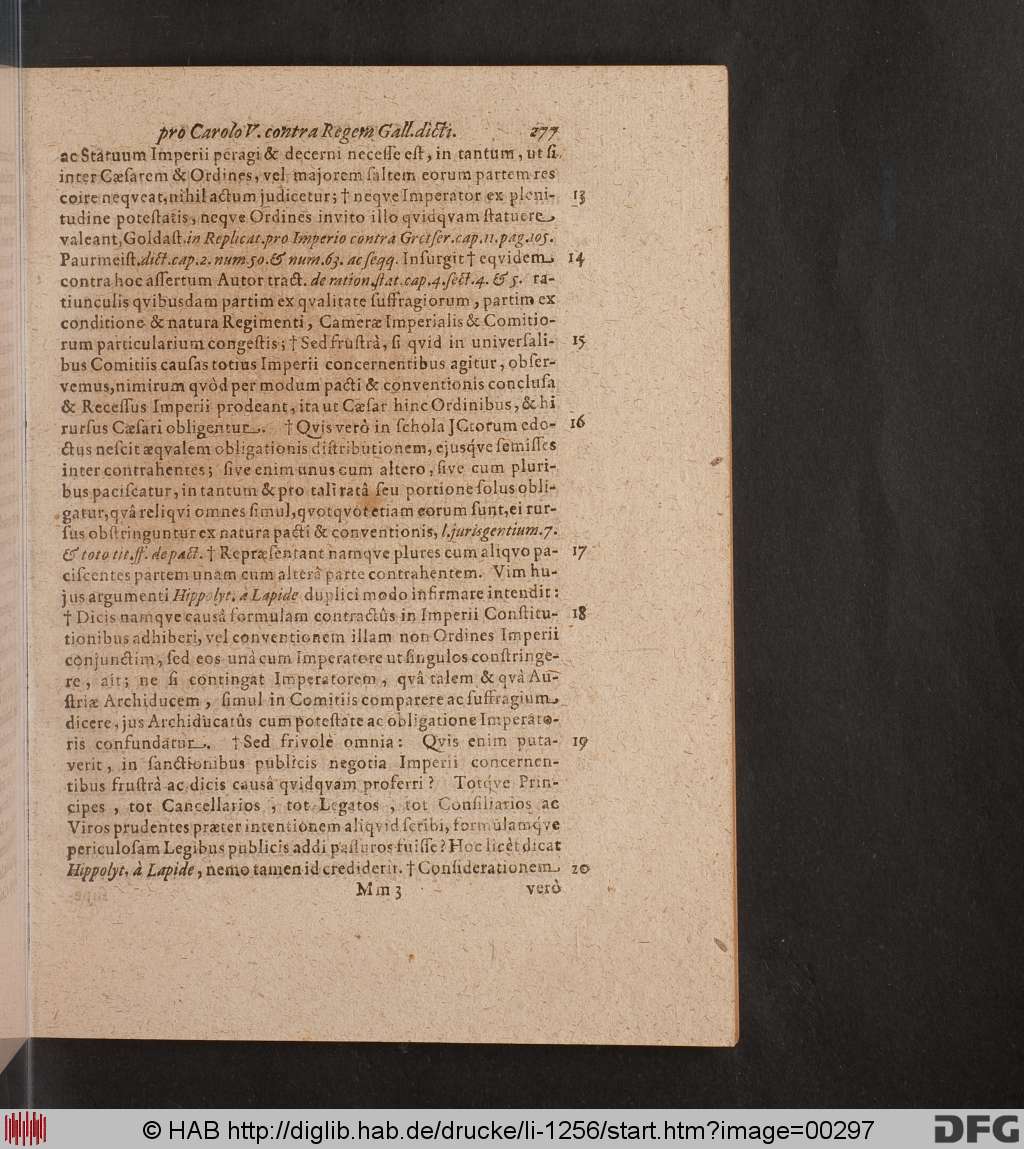 pro Carolo V. contra Regem Gall. dicti. 277
ac Statuum Imperii peragi & decerni necesse est, in tantum, ut si
inter Cæsarem & Ordines, vel majorem saltem eorum partem res
coire neqveat, nihil actum judicetur; † neqve Imperator ex pleni- 13
tudine potestatis, neqve Ordines invito illo qvidqvam statuere
valeant, Goldast. in Replicat. pro Imperio contra Gretser. cap. 11. pag. 105.
Paurmeist. dict. cap. 2. num. 50. & num. 63. ac seqq. Insurgit † eqvidem 14
contra hoc assertum Autor tract. de ration. stat. cap. 4. sect. 4. & 5. ra-
tiunculis qvibusdam partim ex qvalitate suffragiorum, partim ex
conditione & natura Regimenti, Cameræ Imperialis & Comitio-
rum particularium congestis; † Sed frustrà, si qvid in universali- 15
bus Comitiis causas totius Imperii concernentibus agitur, obser-
vemus, nimirum qvòd per modum pacti & conventionis conclusa
& Recessus Imperii prodeant, ita ut Cæsar hinc Ordinibus, & hi
rursus Cæsari obligentur. † Qvis verò in schola JCtorum edo- 16
ctus nescit æqvalem obligationis distributionem, ejusq́ve semisses
inter contrahentes; sive enim unus cum altero, sive cum pluri-
bus paciscatur, in tantum & pro tali ratâ seu portione solus obli-
gatur, qvâ reliqvi omnes simul, qvotqvot etiam eorum sunt, ei rur-
sus obstringuntur ex natura pacti & conventionis, l. jurisgentium. 7.
& toto tit. ff. de pact. † Repræsentant namqve plures cum aliqvo pa- 17
ciscentes partem unam cum alterâ parte contrahentem. Vim hu-
jus argumenti Hippolyt. à Lapide duplici modo infirmare intendit:
† Dicis namqve causâ formulam contractûs in Imperii Constitu- 18
tionibus adhiberi, vel conventionem illam non Ordines Imperii
conjunctim, sed eos unà cum Imperatore ut singulos constringe-
re, ait; ne si contingat Imperatorem, qvâ talem & qvà Au-
striæ Archiducem, simul in Comitiis comparere ac suffragium
dicere, jus Archiducatûs cum potestate ac obligatione Imperato-
ris confundatur. † Sed frivolè omnia: Qvis enim puta- 19
verit, in sanctionibus publicis negotia Imperii concernen-
tibus frustrà ac dicis causâ qvidqvam proferri? Totq́ve Prin-
cipes, tot Cancellarios, tot Legatos, tot Consiliarios ac
Viros prudentes præter intentionem aliqvid scribi, formulamq́ve
periculosam Legibus publicis addi passuros fuisse? Hoc licèt dicat
Hippolyt. à Lapide, nemo tamen id crediderit. † Considerationem 20
Mm 3 verò
© HAB http://diglib.hab.de/drucke/li-1256/start.htm?image=00297
DFG